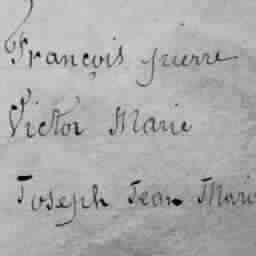 François pierre
Victor Marie
Joseph Jean Marie